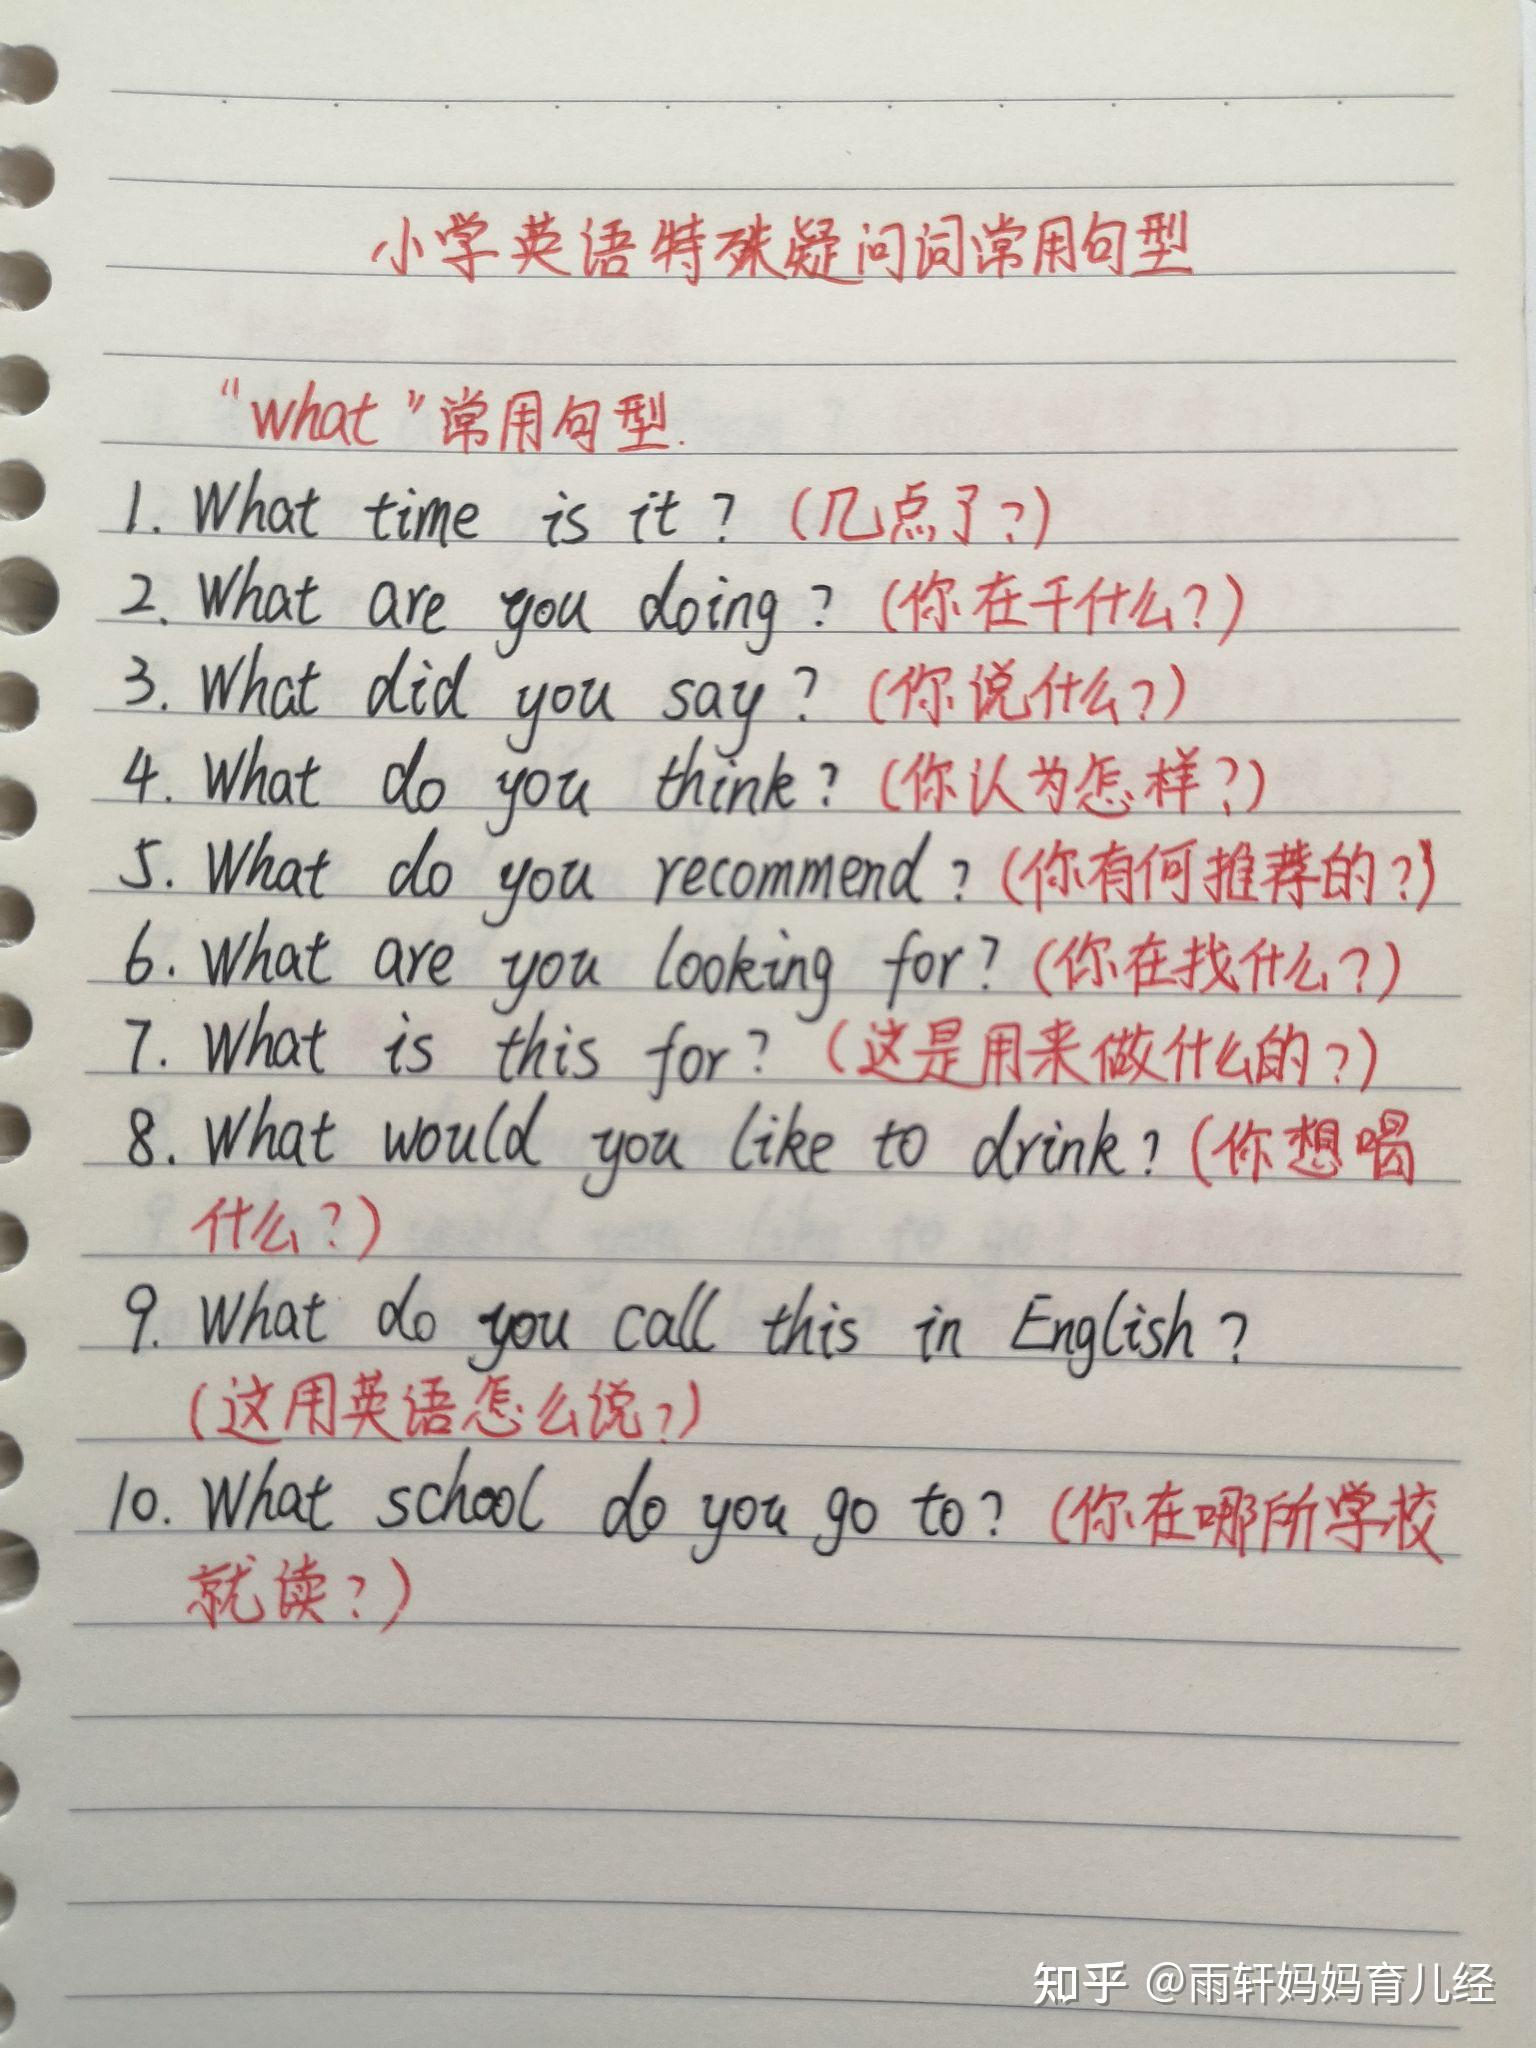 小学英语特殊疑问词常用句型
"what"常用句型.
1. What time is it? (几点了?)
2. What are you doing? (你在干什么?)
3. What did you say? (你说什么?)
4. What do you think? (你认为怎样?)
5. What do you recommend? (你有何推荐的?)
6. What are you looking for? (你在找什么?)
7. What is this for? (这是用来做什么的?)
8. What would you like to drink? (你想喝
什么?)
9. What do you call this in English?
(这用英语怎么说?)
10. What school do you go to? (你在哪所学校
就读?)
知乎 @雨轩妈妈育儿经